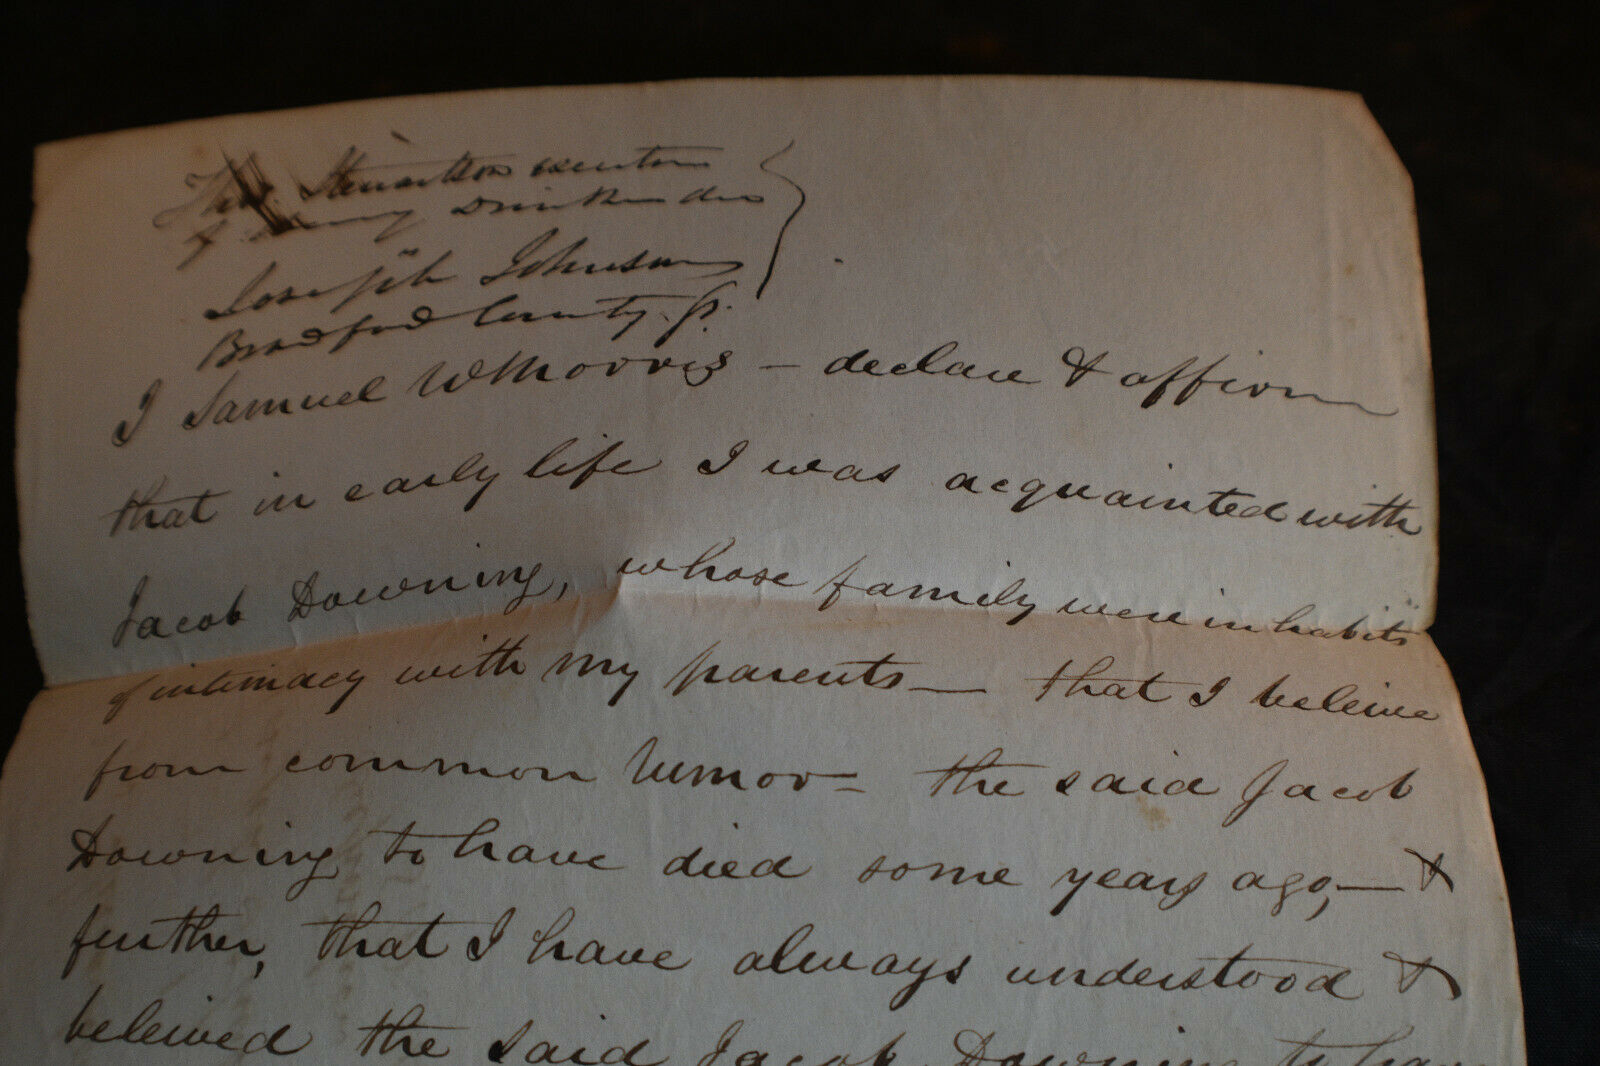 Stewartson executor
of Henry Drinker dec
Joseph Johnson
Bradford County. P.
I Samuel W Morris – declare & affirm
that in early life I was acquainted with
Jacob Downing, whose family were in habits
of intimacy with my parents — that I beleive
from common rumor – the said Jacob
Downing to have died some years ago, — &
further, that I have always understood &
beleived the said Jacob Downing to hav